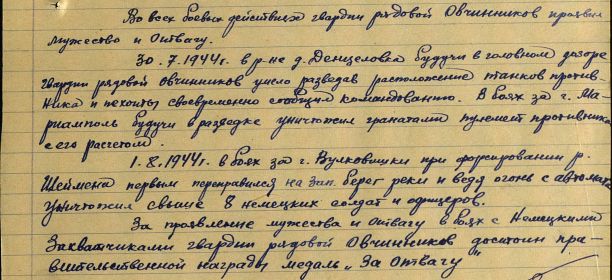 Во всех боевых действиях гвардии рядовой Овчинников проявил
мужество и отвагу.
30.7.1944г. в р-не д. Денцеловка будучи в головном дозоре
гвардии рядовой Овчинников умело разведав расположение танков против-
ника и пехоты своевременно сообщил командованию. В боях за г. Ма-
риамполь будучи в разведке уничтожил гранатами пулемет противника
с его расчетом.
1.8.1944г. в боях за г. Вулковишки при форсировании р.
Шеймена первым переправился на зап. берег реки и ведя огонь с автомата
уничтожил свыше 8 немецких солдат и офицеров.
За проявление мужества и отвагу в боях с Немецкими
Захватчиками гвардии рядовой Овчинников достоин пра-
вительственной награды медаль „За Отвагу"